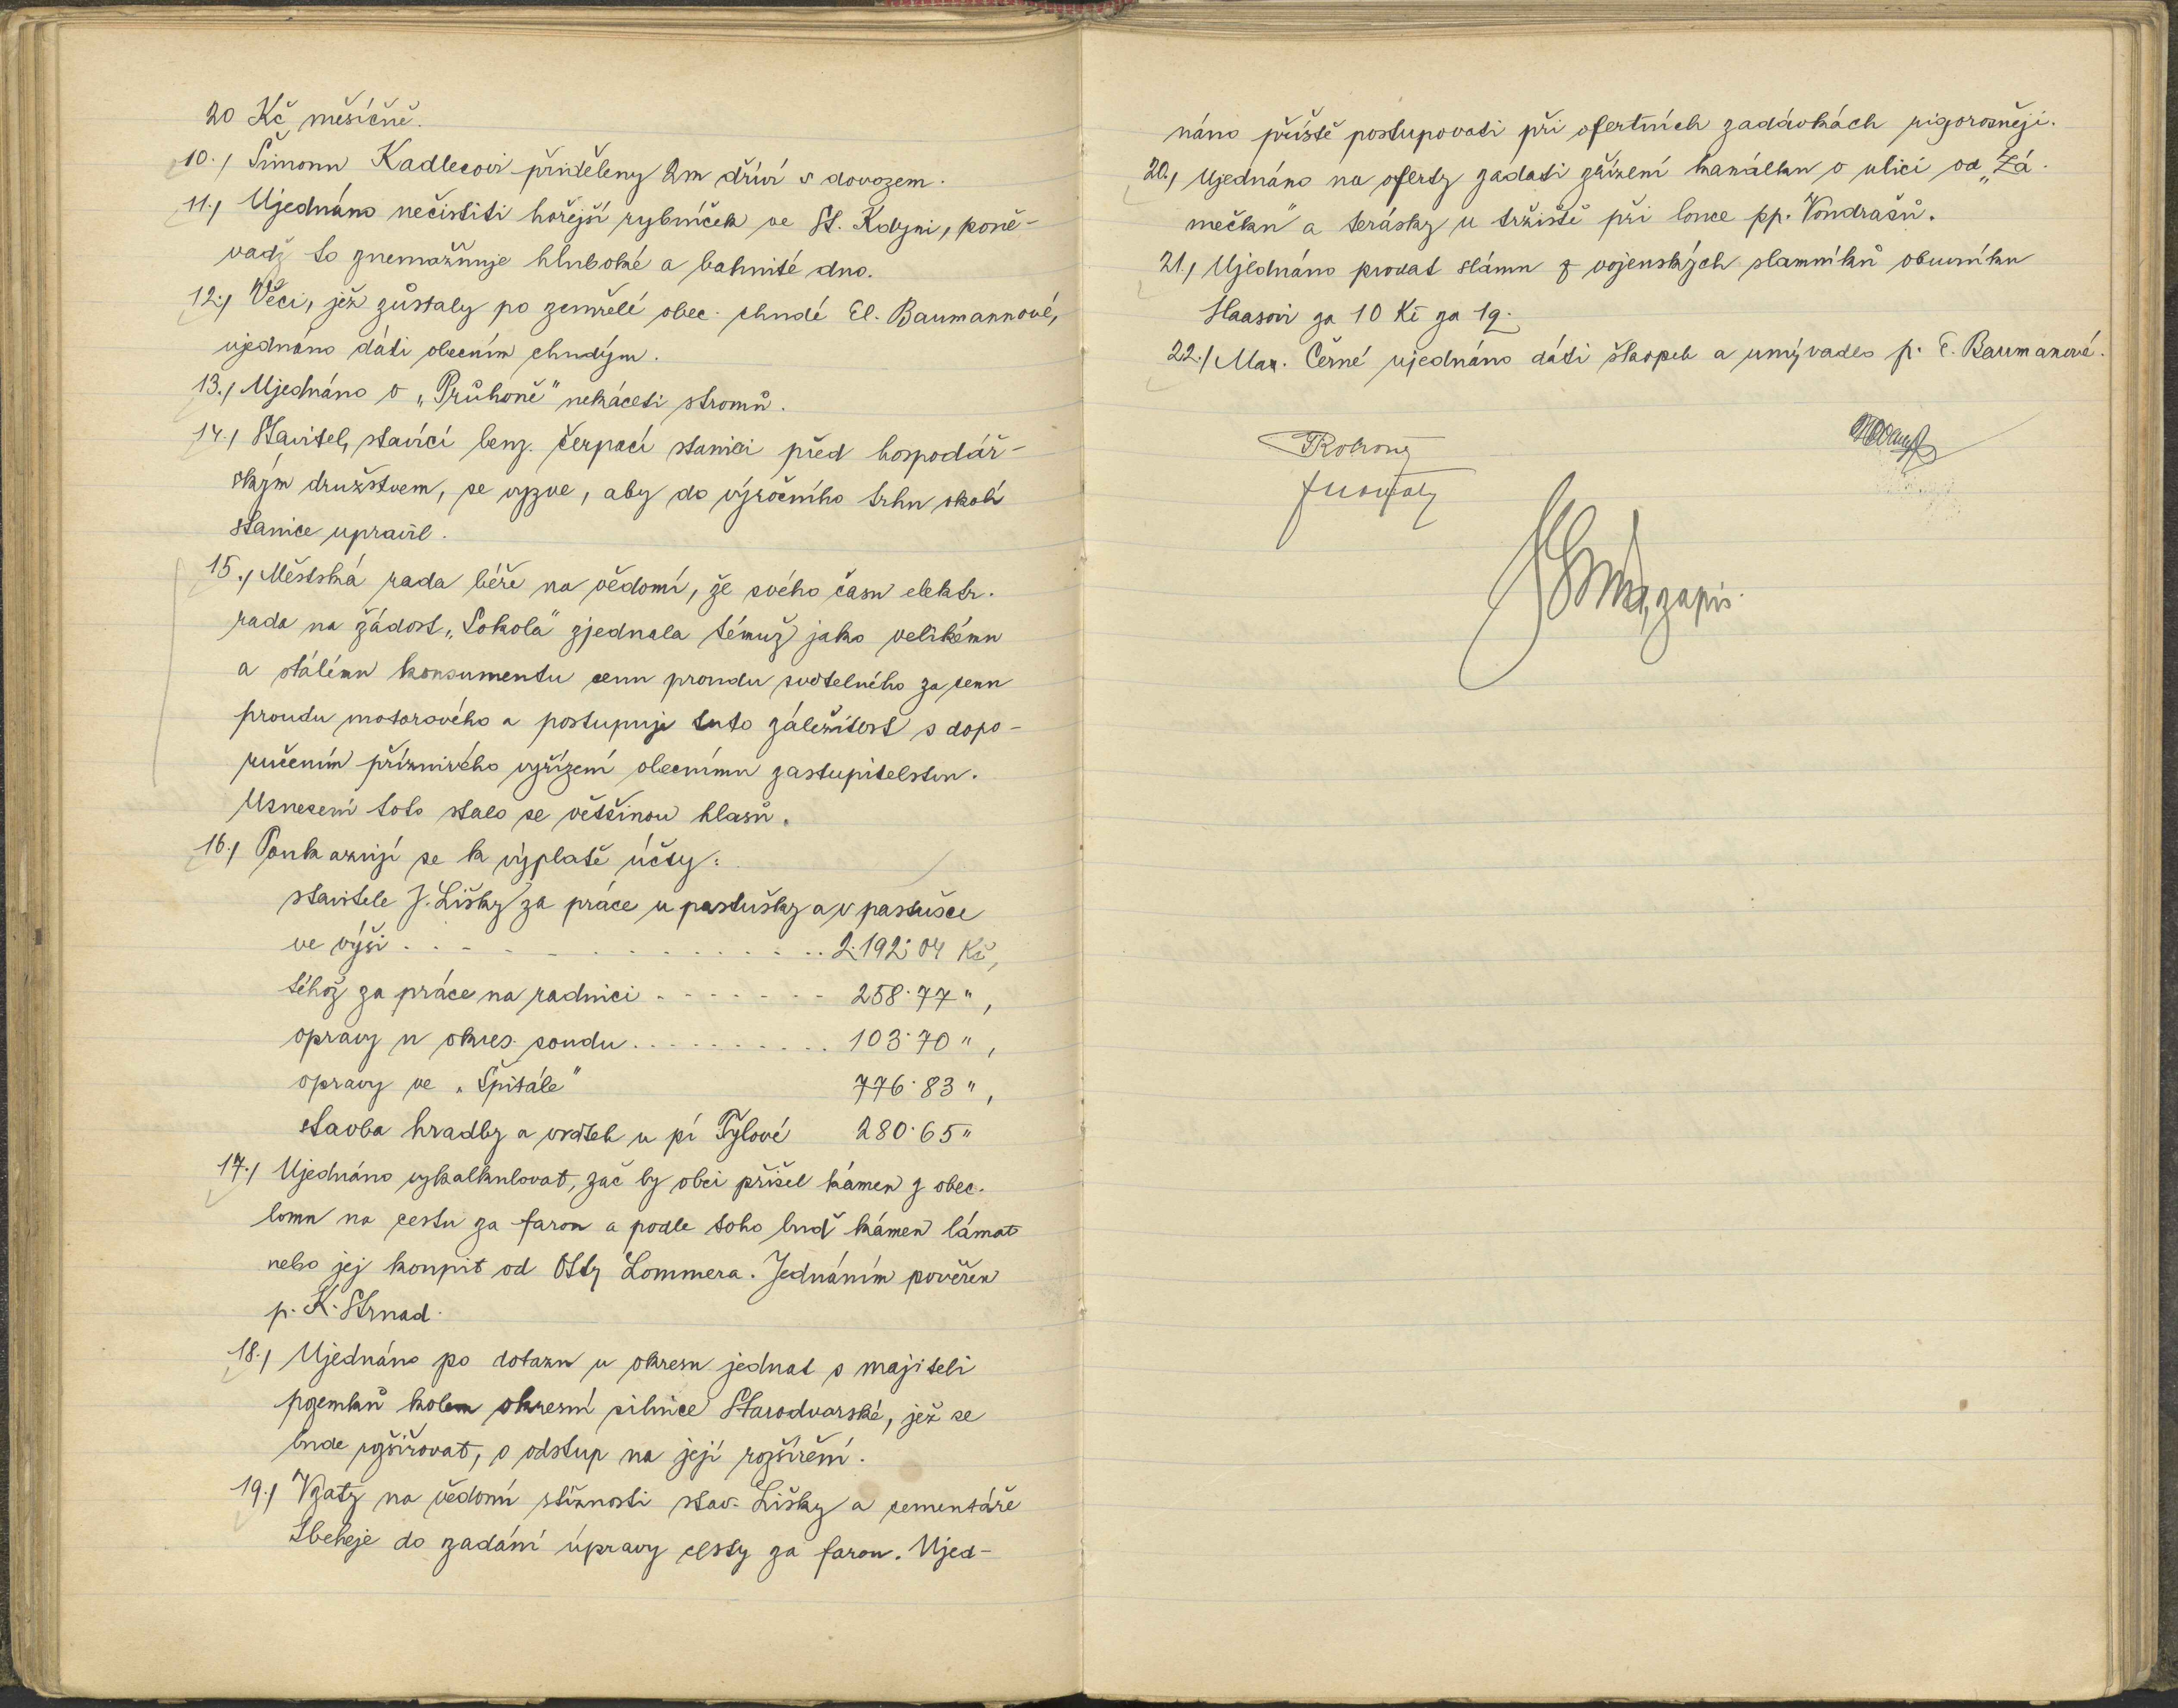 20 Kč měsíčně.
10./ Šimonu Kadlecovi přiděleny 2m dříví s dovozem.
11./ Ujednáno nečistiti hořejší rybníček ve St. Kdyni, poně-
vadž to znemožňuje hluboké a bahnité dno.
12./ Věci, jež zůstaly po zemřelé obec. chudé El. Baumannové,
ujednáno dáti obecním chudým.
13./ Ujednáno v „Průhoně" nekáceti stromů.
14./ Stavitel, stavící benz. čerpací stanici před hospodář-
ským družstvem, se vyzve, aby do výročního trhu okolí
stanice upravil.
15./ Městská rada béře na vědomí, že svého času elektr.
rada na žádost „Sokola" zjednala témuž jako velikému
a stálému konsumentu cenu proudu světelného za cenu
proudu motorového a postupuje tuto záležitost s dopo-
ručením příznivého vyřízení obecnímu zastupitelstvu.
Usnesení toto stalo se většinou hlasů.
16./ Poukazují se k výplatě účty:
stavitele J. Lišky za práce u pastušky a v pastušce
ve výši . . . . . . . . . . . . . 2.192·04 Kč,
téhož za práce na radnici . . . . . . . 258·77 ",
opravy u okres. soudu . . . . . . . . . . 103·70 ",
opravy ve „Špitále" 776·83 ",
stavba hradby a vrátek u pí Tylové 280·65 "
17./ Ujednáno vykalkulovat, zač by obci přišel kámen z obec.
lomu na cestu za farou a podle toho buď kámen lámat
nebo jej koupit od Otty Lommera. Jednáním pověřen
p. K. Strnad.
18./ Ujednáno po dotazu u okresu jednat s majiteli
pozemků kolem okresní silnice Starodvorské, jež se
bude rozšiřovat, o odstup na její rozšíření.
19./ Vzaty na vědomí stížnosti stav. Lišky a cementáře
do zadání úpravy cesty za farou. Ujed-
náno příště postupovati při ofertních zadávkách rigorosněji.
20./ Ujednáno na oferty zadati zřízení kanálku v ulici od „Zá-
mečku" a terásky u tržiště při louce pp. Vondrašů.
21./ Ujednáno prodat slámu z vojenských slamníků obuvníku
Haasovi za 10 Kč za 1q.
22./ Mar. Černé ujednáno dáti škopek a umývadlo p. E. Baumanové.
zapis.